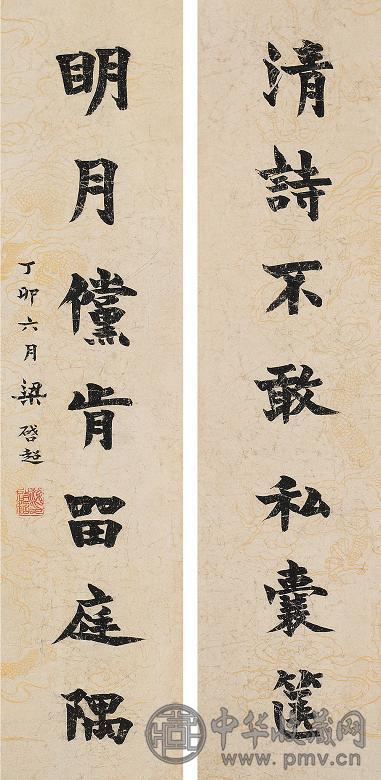 清詩不敢私囊箧
明月儻肯留庭隅
丁卯六月梁啓超
中华收藏网
www.pmv.cn